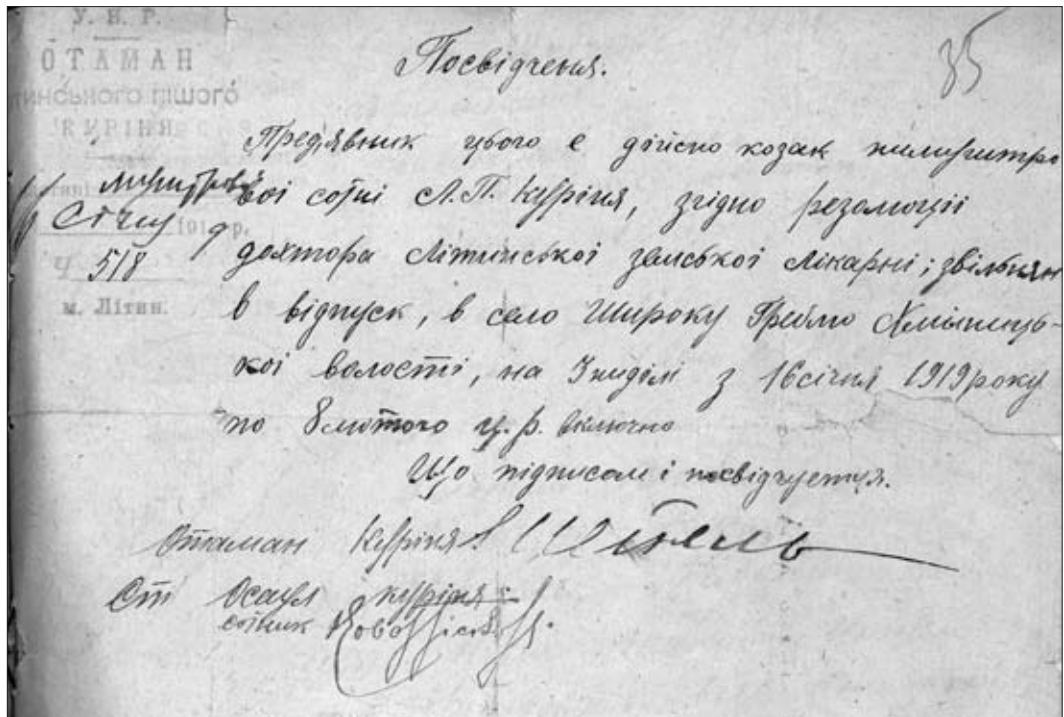 У. Н. Р.
ОТАМАН
тинського пішого
КУРІНЯ
Січня 191 р.
518
м. Літин.
35
Посвідченя.
Предявник цього є дійсно козак
вої сотні Л.П. Куріня, згідно резолюціі
доктора Літинської земської лікарні; звільнян
в відпуск, в село Широку Греблю Хмільниць-
кої волості, на 3 неділі з 16 січня 1919 року
по 8 лютого ц.р. включно
Що підписом і посвідчуется.
Отаман Куріня
Ст Осаул куріня
сотник